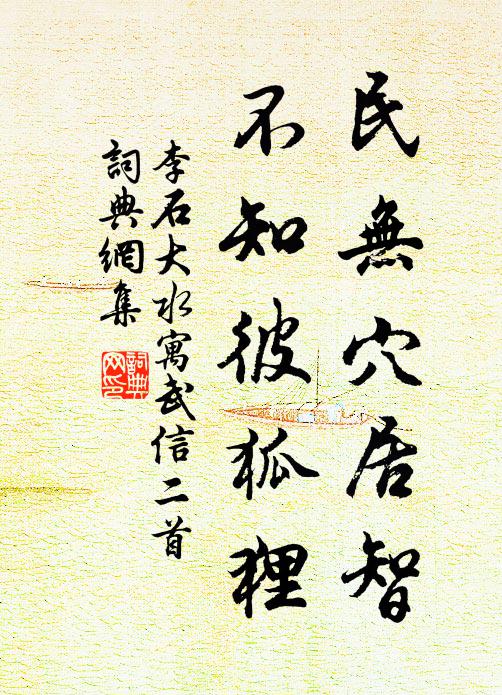 民無穴居智
不知彼狐狸
李石大水寓武信二首
詞典網集
詞典
网印